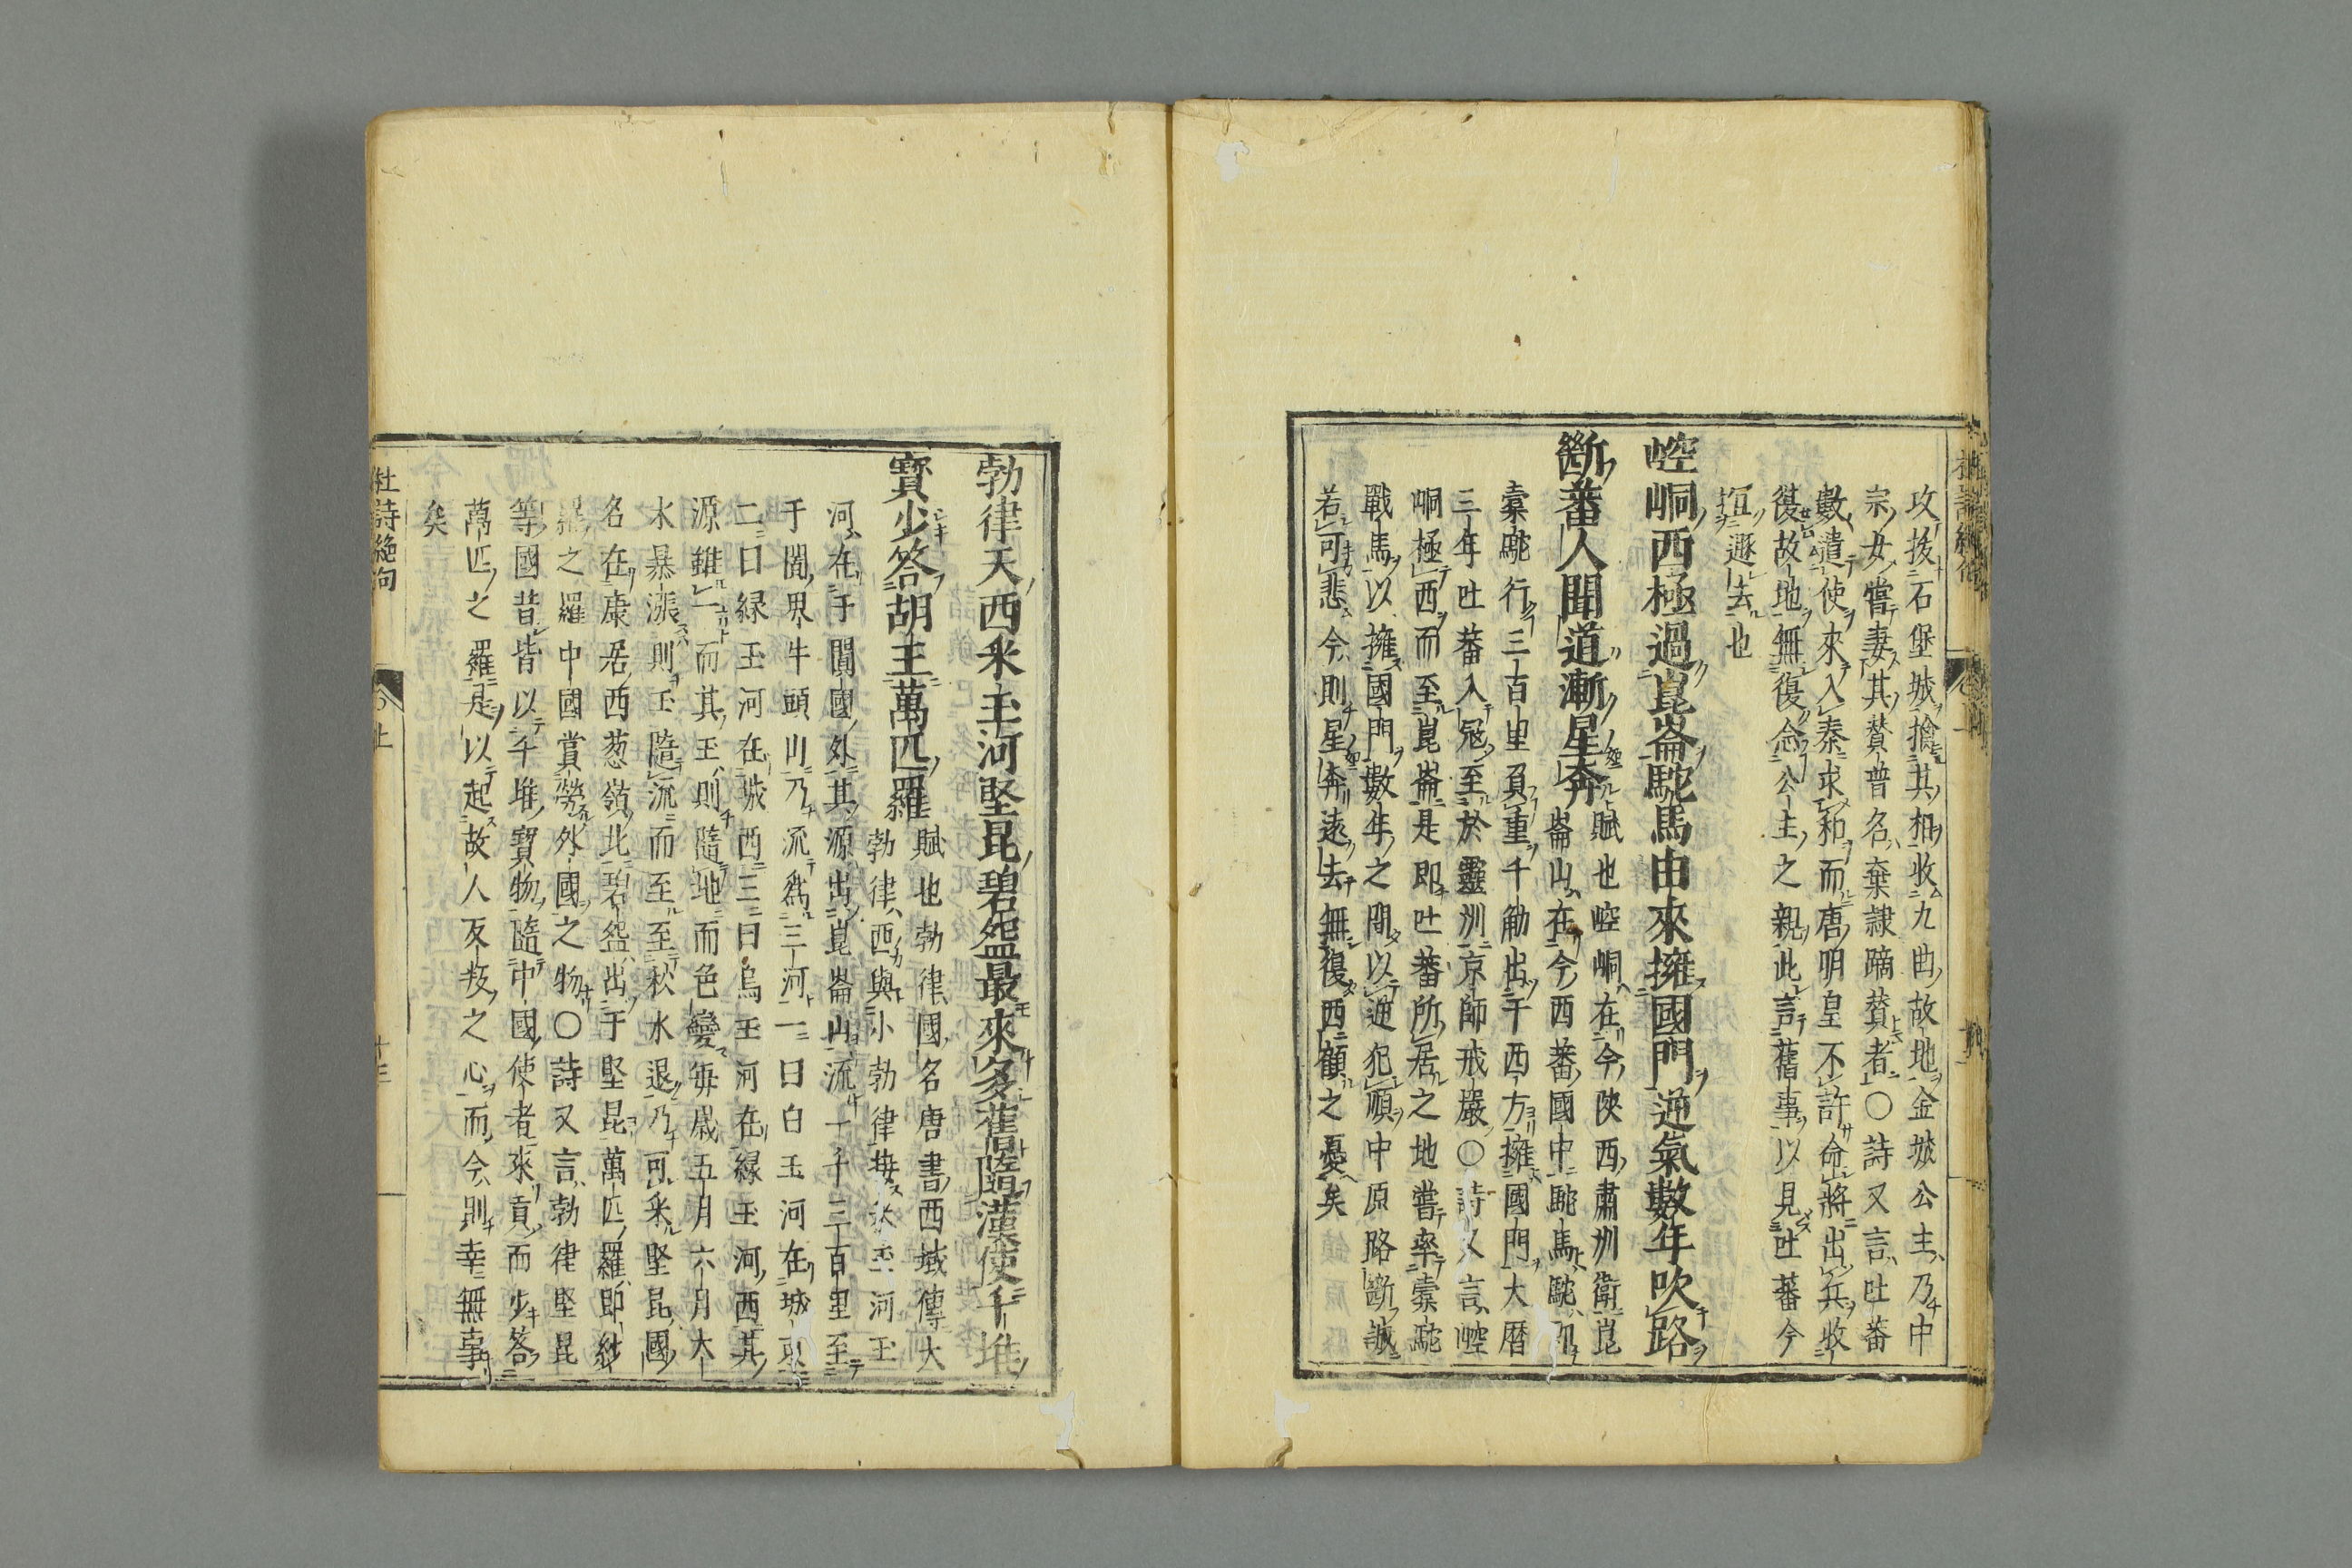 攻拔石堡城擒其相收九曲故地金城公主乃中
宗女嘗妻其贊普名棄隷蹜贊者〇詩又言吐蕃
數遣使來入秦求和而唐明皇不許命將出兵收
復故地無復念公主之親此言舊事以見吐蕃今
遯去也
崆峒西極過崑崙駝馬由來擁國門逆氣數年吹路
斷蕃人聞道漸星奔
賦也崆峒在今陝西肅洲衛崑
崙山在今西蕃國中駞馬駞即
橐駞行三百里負重千觔出于西方擁國門大暦
三年吐蕃入冦至於靈洲京師戒嚴〇詩又言崆
峒極西而至崑崙是即吐蕃所居之地嘗率橐駞
戰馬以擁國門數年之間以逆犯順中原路斷誠
若可悲今則星奔遠去無復西顧之憂矣
勃律天西釆玉河堅昆碧盌最來多舊隨漢使千堆
寳少答胡王萬匹羅
賦也勃律國名唐書西域傳大
勃律西與小勃律接釆玉河玉
河在于闐國外其源出崑崙山流一千三百里至
于闐界牛頭山乃流爲三河一曰白玉河在城東
二曰緑玉河在城西三曰烏玉河在緑玉河西其
源雖一而其玉則隨地而色變毎歳五月六月大
水暴漲則玉隨流而至至秋水退乃可釆堅昆國
名在康居西葱嶺北碧盌出于堅昆萬匹羅即紗
羅之羅中國賞勞外國之物〇詩又言勃律堅昆
等國昔皆以千堆寳物隨中國使者來貢而少荅
萬匹之羅是以起故人反㧞之心而今則幸無事
矣
杜詩絶句
上
十三